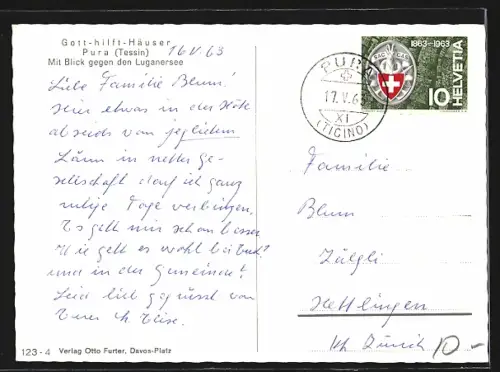 Gott-hilft-Häuser
Pura (Tessin)
Mit Blick gegen den Luganersee
16.V.63
Liebe Familie Blum!
Hier etwas in der Höhe
abseids von jeglichem
Lärm in netter Ge-
sellschaft darf ich ganz
ruhige Tage verbringen.
Es geht mir schon besser.
Wie geht es wohl bei Euch?
und in der Gemeinde?
Seid lieb gegrüsst von
Eurer
123 - 4 Verlag Otto Furter, Davos-Platz
1863-1963
SAC CAS
HELVETIA
10
PURA
17.V.6
XI
(TICINO)
Familie
Blum
Hettlingen
Kt. Zürich
10.-